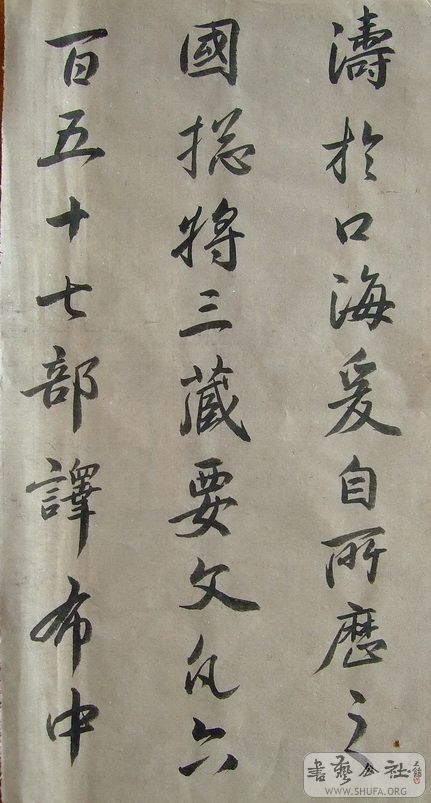 濤於口海爰自所歷之
國捴將三藏要文凡六
百五十七部譯布中
書藝公社
WWW.SHUFA.ORG